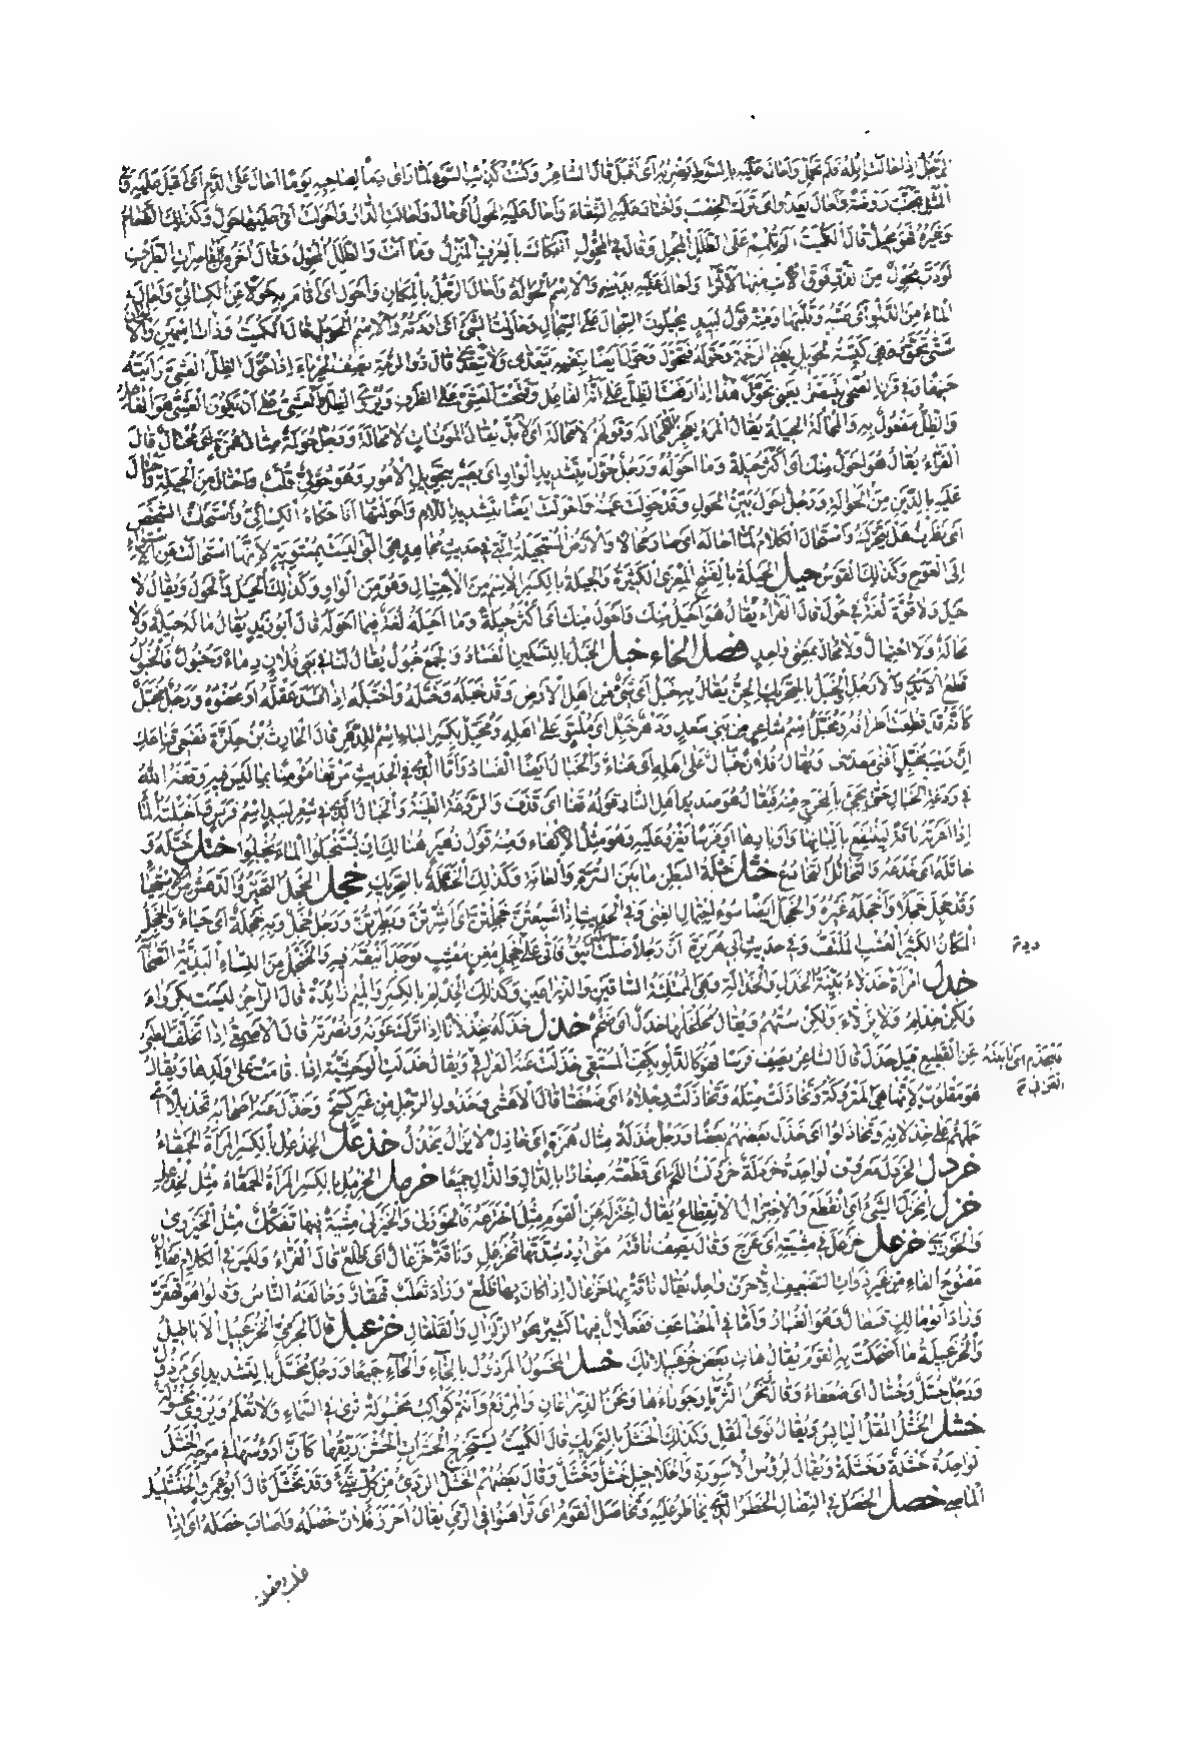 لم تحل اذا حالت ابله فلم تحمل واحال عليه بالسوط يضربه اى اقبل قال الشاعر وكنت كذئب السوء لما راى دما بصاحبه يوما احال على الدم اى اقبل عليه
المثل تجنب روضة واحال يعدو اى ترك الخصب واختار عليه الشقاء واحال عليه الحول اى حال واحالت الدار واحولت اى اتى عليها حول وكذلك الطعام
وغيره فهو محيل قال الكميت الم تلمم على الطلل المحيل وقال فى المحول ابكاك بالعرف المنزل وما انت والطلل المحول وقال اخر من القاصرات الطرف
لو دب محول من الذر فوق الاتب منها لاثرا واحال عليه بدينه والاسم الحوالة واحال الرجل بالمكان واحول اى اقام به حولا عن الكسائى واحال
الماء من الدلو اى صبه وقلبها ومنه قول لبيد يحيلون السجال على السجال وحاولت الشىء اى اردته والاسم الحويل قال الكميت وذات اسمين والالوان
شتى تحمق وهى كيسة الحويل يعنى الرخمة وحوله فتحول وحول ايضا بنفسه يتعدى ولا يتعدى قال ذو الرمة يصف الحرباء اذا حول الظل العشى رايته
حنيفا وفى قرن الضحى يتنصر يعنى تحول هذا اذا رفعت الظل على انه الفاعل وفتحت العشى على الظرف ويروى الظل العشى على ان يكون العشى هو الفاعل
والظل مفعول به والمحالة الحيلة يقال المرء يعجز لا المحالة وقولهم لا محالة اى لا بد يقال الموت ات لا محالة ورجل حولة مثال همزة اى محتال قال
الفراء يقال هو احول منك اى اكثر حيلة وما احوله ورجل حول بتشديد الواو اى بصير بتحويل الامور وهو حول قلب واحتال من الحيلة واحتال
عليه بالدين من الحوالة ورجل احول بين الحول وقد حولت عينه واحولت ايضا بتشديد اللام واحولتها انا حكاه الكسائى واستحلت الشخص
اى نظرت هل يتحرك واستحال الكلام لما احاله اى صار محالا والارض المستحيلة التى فى حديث مجاهد هى التى ليست بمستوية لانها استحالت عن الاستواء
الى العوج وكذلك القوس حيل الحيلة بالفتح المعزى الكثيرة والحيلة بالكسر الاسم من الاحتيال وهو من الواو وكذلك الحيل والحول ويقال لا
حيل ولا قوة لغة فى حول قال الفراء يقال هو احيل منك واحول منك اى اكثر حيلة وما احيله لغة فيما احوله قال ابو زيد يقال ما له حيلة ولا
محالة ولا احتيال ولا محال بمعنى واحد فصل الخاء خبل الخبل بالتسكين الفساد والجمع خبول يقال لنا فى بنى فلان دماء وخبول فالخبول
قطع الايدى والارجل والخبل بالتحريك الجن يقال به خبل اى شىء من اهل الارض وقد خبله وخبله واختبله اذا افسد عقله او عضوه ورجل مخبل
كانه قد قطعت اطرافه ومخبل اسم شاعر من بنى سعد ودهر خبل اى ملتو على اهله ومخبل بكسر الباء اسم للدهر قال الحارث بن حلزة فضعى قناعك
ان ريب مخبل افنى معدا ويقال فلان خبال على اهله اى عناء والخبال ايضا الفساد واما الذى فى الحديث من قفا مؤمنا بما ليس فيه وقفه الله
فى ردغة الخبال حتى يجىء بالمخرج منه فيقال هو صديد اهل النار قوله قفا اى قذف والردغة الطينة والخبال الذى فى شعر لبيد اسم فرس واخبلته المال
اذا اعرته ناقة لينتفع بالبانها واوبارها او فرسا يغزو عليه وهو مثل الاكفاء ومنه قول زهير هنالك ان يستخبلوا المال يخبلوا ختل ختله و
خاتله اى خدعه والتخاتل التخادع خثل خثلة البطن ما بين السرة والعانة وكذلك الخثلة بالتحريك خجل الخجل التحير والدهش من الاستحياء
وقد خجل خجلا واخجله غيره والخجل ايضا سوء احتمال الغنى وفى الحديث اذا شبعتن خجلتن اى اشرتن وبطرتن ورجل خجل وبه خجلة اى حياء والخجل
المكان الكثير العشب الملتف وفى حديث ابى هريرة ان رجلا ضلت له اينق فاتى على خجل مغن معشب فوجد اينقه فيه
خدل امراة خدلاء بينة الخدل والخدالة وهى الممتلئة الساقين والذراعين وكذلك الخدلم بالكسر والميم زائدة قال الراجز ليست بكرواء
ولكن خدلم ولا بزلاء ولكن ستهم ويقال مخلخلها خدل اى ضخم خذل خذله خذلانا اذا ترك عونه ونصرته قال الاصمعى اذا تخلف الظبى
عن القطيع قيل خذل قال الشاعر يصف فرسا فهو كالدلو بكف المستقى خذلت عنه العراقى ويقال خذلت الوحشية اذا قامت على ولدها ويقال
هو مقلوب لانها هى المتروكة وتخاذلت مثله وتخاذلت رجلاه اى ضعفتا قال الاعشى وخذول الرجل من غير كسح وخذل عنه اصحابه تخذيلا اى
حملهم على خذلانه وتخاذلوا اى خذل بعضهم بعضا ورجل خذلة مثال همزة اى خاذل لا يزال يخذل خذعل الخذعل بالكسر المراة الحمقاء
خردل الخردل معروف الواحدة خردلة خردلت اللحم اى قطعته صغارا بالدال والذال جميعا خرمل الخرمل بالكسر المراة الحمقاء مثل الخذعل
خزل انخزل الشىء اى انقطع والاختزال الانقطاع يقال اختزله عن القوم مثل اختزعه والخوزلى والخيزلى مشية فيها تفكك مثل الخيزرى
والخوزرى خزعل خزعل فى مشيته اى عرج وقال يصف ناقته متى ارد شدتها تخزعل وناقة خزعال اى ظلع قال الفراء وليس فى الكلام فعلال
مفتوح الفاء من غير ذوات التضعيف الا حرف واحد يقال ناقة بها خزعال اذا كان بها ظلع وزاد ثعلب قهقار وخالفه الناس وقالوا هو قهقر
وزاد ابو مالك قسطال وهو الغبار واما فى المضاعف ففعلال فيها كثير نحو الزلزال والقلقال خزعبل قال الجرمى الخزعبيل الاباطيل
والخزعبيلة ما اضحكت به القوم يقال هات بعض خزعبيلاتك خسل المخسول المرذول بالخاء والحاء جميعا ورجل مخسل بالتشديد اى مرذول
ورجل خسل وخسال اى ضعفاء وقال ونحن الثريا وجوزاءها ونحن الذراعان والمرزم وانتم كواكب مخسولة ترى فى السماء ولا تعلم ويروى مسخولة
خشل الخشل المقل اليابس ويقال نوى المقل وكذلك الخشل بالتحريك قال الكميت يستخرج الحشرات الخشن ريقها كان ارؤسها فى موجه الخشل
الواحدة خشلة وخشلة ويقال لرؤس الاسورة والخلاخيل خشل وخشل وقال بعضهم الخشل الردى من كل شىء وقد تخشل قال ابو عمرو والخنشليل
الماضى خصل الخصل فى النضال الخطر الذى يخاطر عليه وتخاصل القوم اى تراهنوا فى الرمى يقال احرز فلان خصله واصاب خصله اى اذا